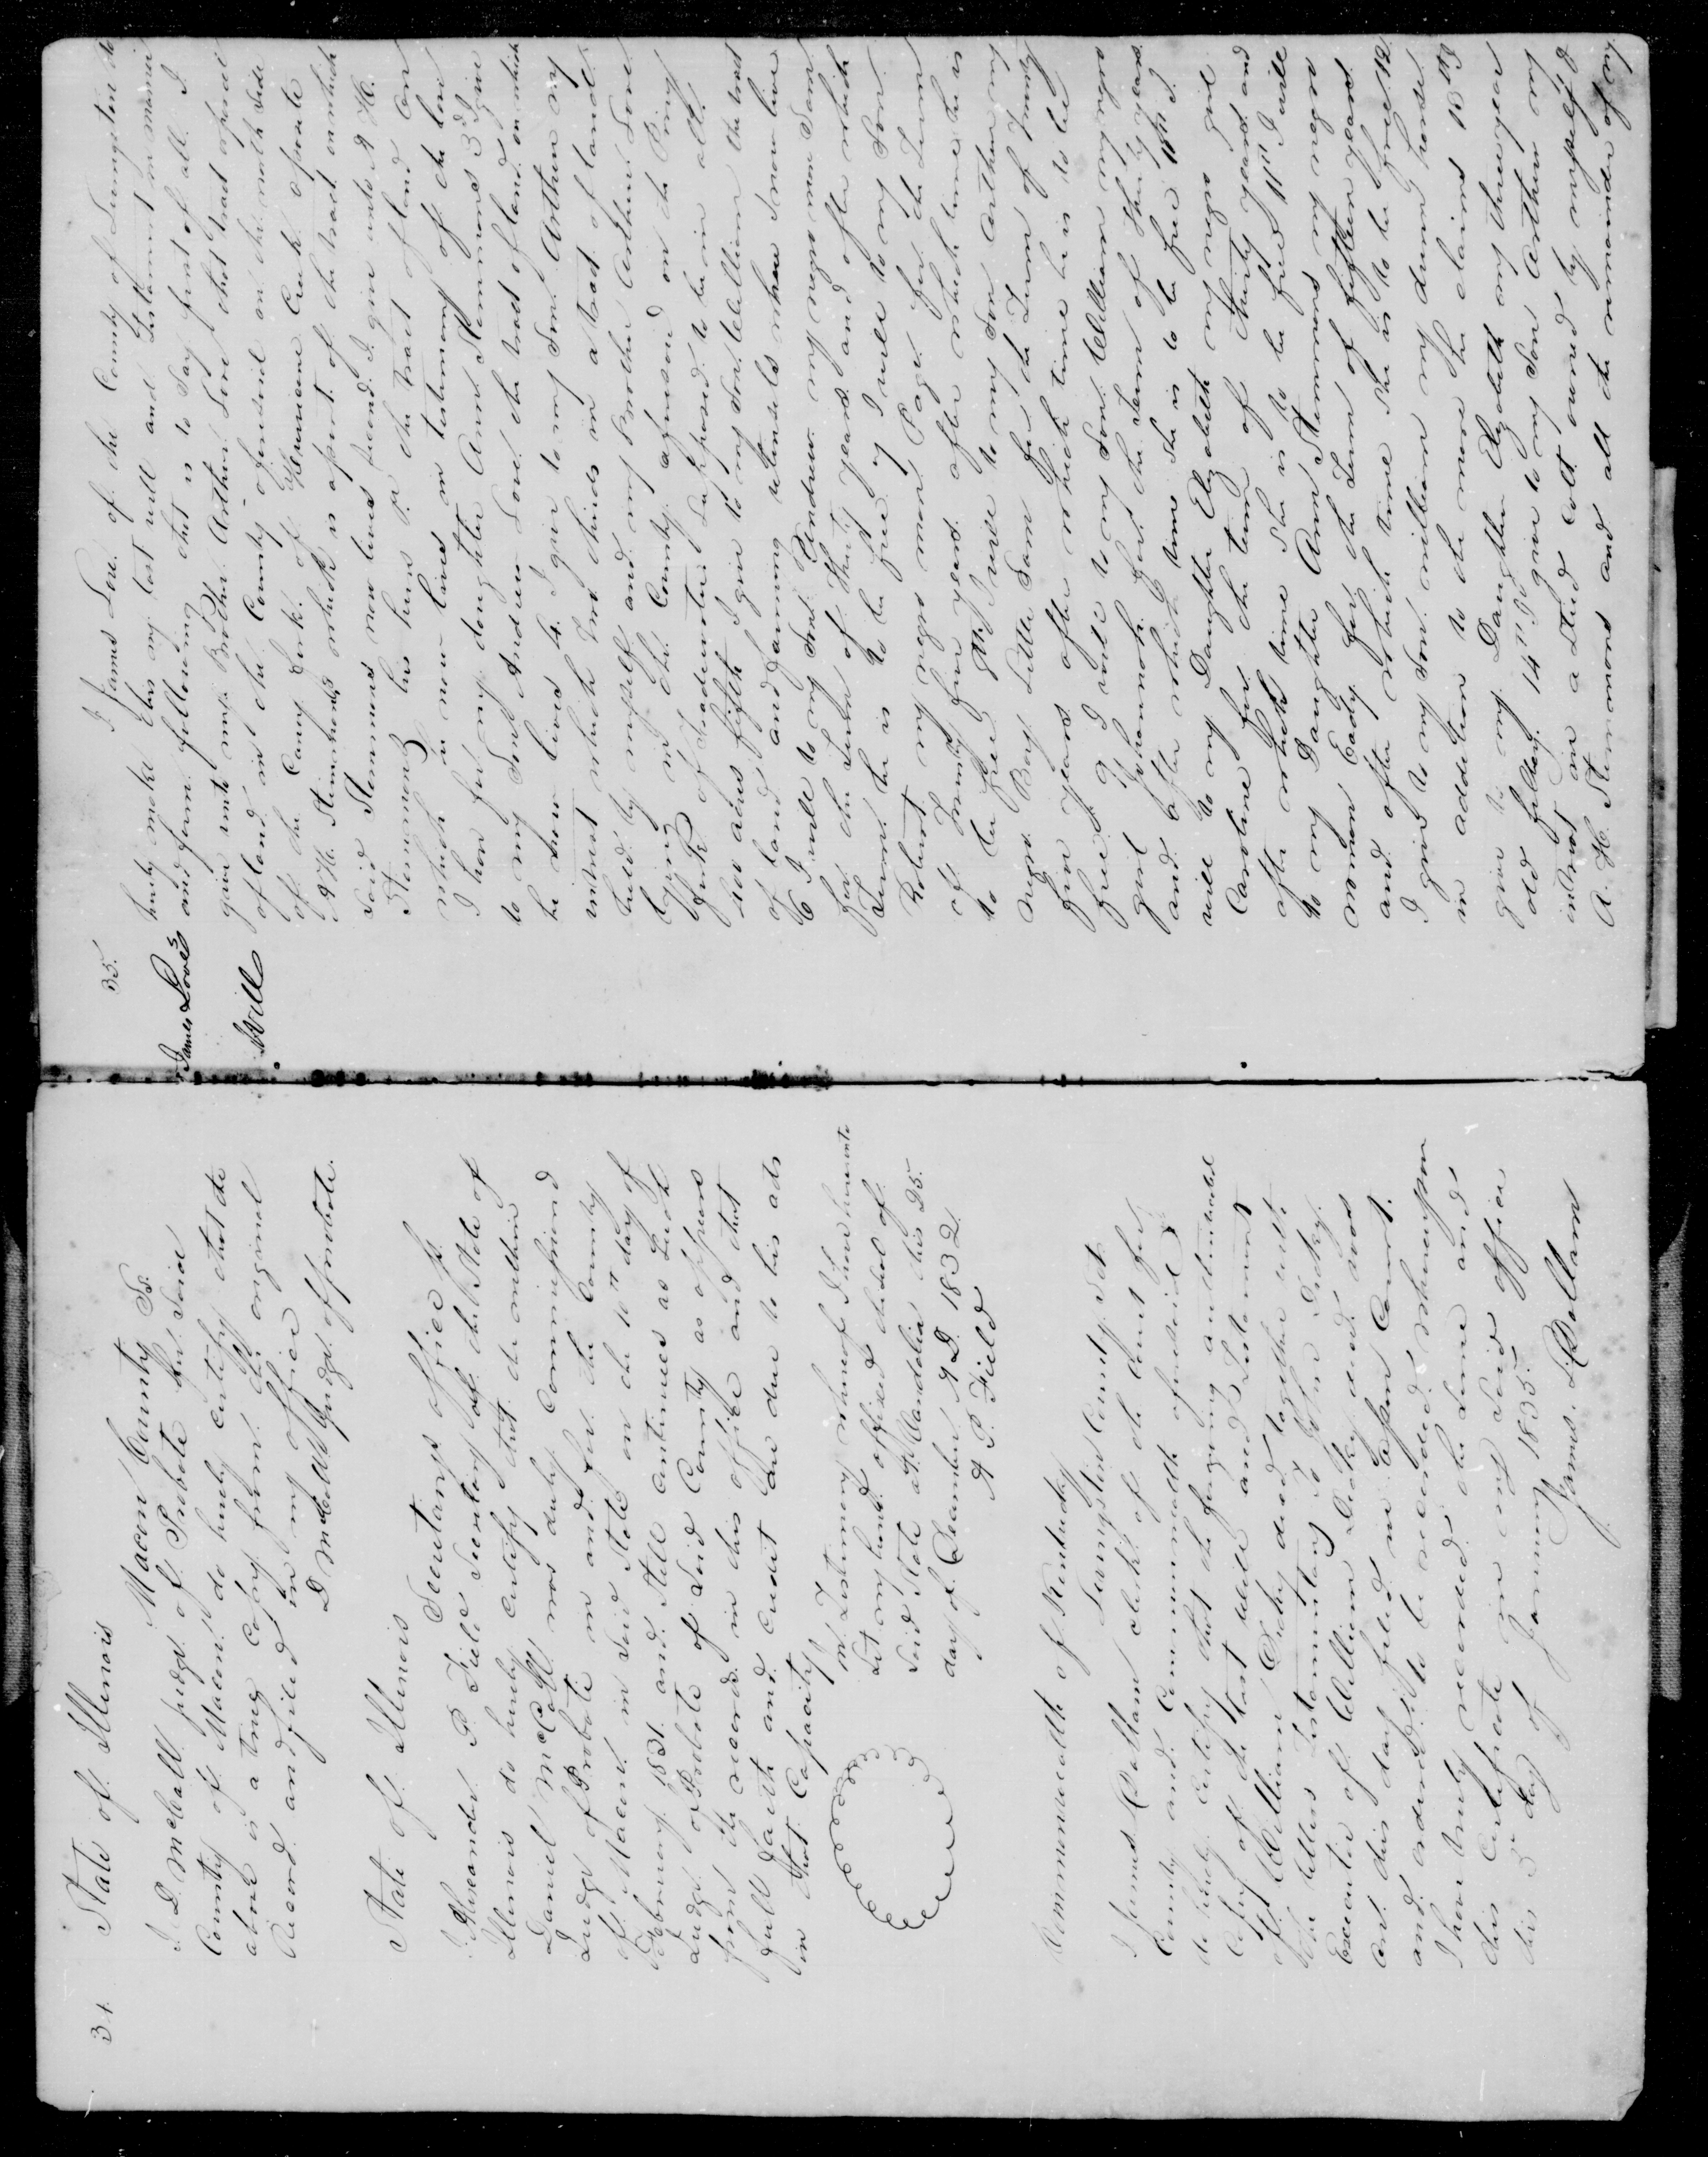 34
State of Illinois
Macon County Ss.
I D. McCall judge of Probate for Said
County of Macon do hereby certify that the
above is a true copy from the original
Record and filed in my office
D McCall Judge of probate.
State of Illinois
Secretarys office Ss.
I Alexander P. Field Secretary of the State of
Illinois do hereby certify that the within
Daniel McCall was duly Commissioned
Judge of Probate in and for the County
of Macon in Said State on the 10th day of
February 1831. and Still continues as Such
Judge of Probate of Said County as appears
from the records in this office and that
full faith and credit are due to his acts
in that Capacity
In Testimony whereof I have hereunto
Set my hand & affixed the Seal of
Said State at Vandalia this 25.
day of December A.D. 1832.
A. P. Field
Commonwealth of Kentucky
Livingston County Sct
I James Cullam clerk of the Court for
County and Commonwealth aforesaid
do hereby certify that the foregoing authenticated
Copy of the last will and Testament
of William Dicky decd together with
the letters Testamentary to John Dicky.
Executor of William Dicky decd was
on this day filed in open Court.
and ordered to be recorded whereupon
I have truly recorded the Same and
this Certificate in my Said office
this 5th day of January 1835.
James. L. Cullam
35.
James Love's
Will
I James Love. of the County of Livingston do
hereby make this my last will and Testament in manner
and form following that is to Say first of all I
give unto my Brother Arthur Love that tract or parcel
of land in the County aforesaid on the north side
of the Camy fork of Hurricane Creek opposite
A H. Stemmons which is a part of the tract on which
Said Stemmons now lives Second. I give unto A H.
Stemmons his heirs &c the tract of land on
which he now lives in testimony of the love
I have for my daughter Ann Stemmons 3d I give
to my Son Andrew Love the tract of land on which
he now lives 4. I give to my Son Arthur my
interest which two thirds in a tract of land.
held by myself and my Brother Arthur Love
lying in the County aforesaid on the Piney
fork of Tradewater Supposed to be in all.
100 acres fifth I give to my Son William the tract
of land and farming utensils where I now live
6 I will to my Son Andrew my negro man Sam
for the term of thirty years and after which
Term he is to be free 7 I will to my Son
Robert my negro man Page for the Term
of Twenty five years after which time he is
to be free 8th I will to my Son Arthur my
negro Boy Little Sam for the Term of Twenty
five years after which time he is to be
free 9 I will to my Son William my negro
girl for the Term of Thirty years
and after which time She is to be free 10th I
will to my Daughter Elizabeth my negro girl
Caroline for the term of thirty years and
after which time She is to be free 11th I will
to my Daughter Ann Stemmons my negro
woman Easy for the Term of fifteen years
and after which time She is to be free 12
I give to my Son William my horse
in addition to the more he claims 13th I
give to my Daughter Elizabeth my three year
old filley 14th I give to my Son Arthur my
interest in a Stud Colt owned by myself &
A. H. Stemmons and all the remainder of my